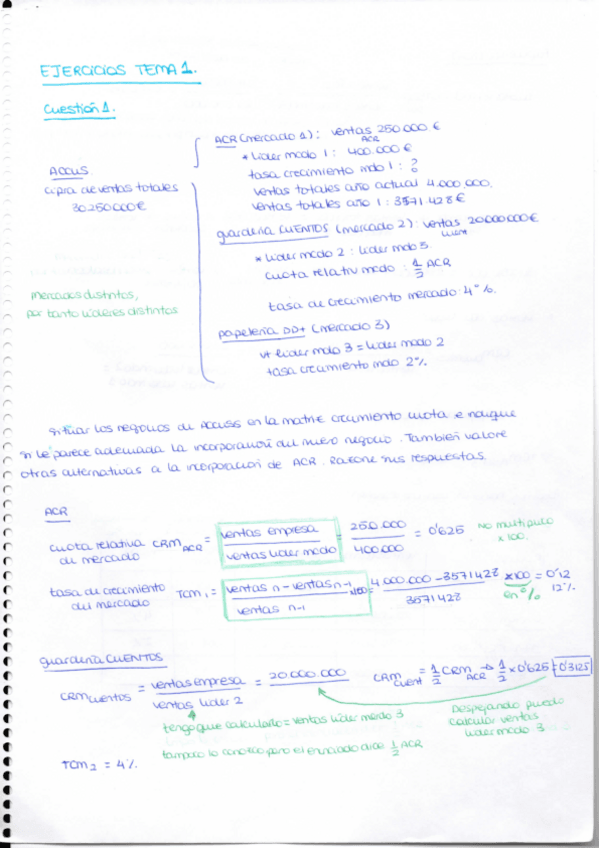 EJERCICIOS TEMA 1.
Cuestión 1.
ACR (mercado 1): ventas ACR 250.000 €
* Líder mcdo 1: 400.000 €
tasa crecimiento mdo 1: ?
ventas totales año actual 4.000.000.
ventas totales año 1: 3571428 €
ACCUS
cifra de ventas totales
30.250.000 €
guardería CUENTOS (mercado 2): ventas CUENT 20.000.000 €
* Líder mcdo 2: Líder mdo 3.
cuota relativ mcdo: 1/2 ACR
tasa de crecimiento mercado: 4%.
mercados distintos,
por tanto líderes distintos
papelería DD+ (mercado 3)
vt líder mdo 3 = líder mcdo 2
tasa crecimiento mdo 2%.
Situar los negocios de ACCUSS en la matriz crecimiento cuota e indique
si le parece adecuada la incorporación del nuevo negocio. También valore
otras alternativas a la incorporación de ACR. Razone sus respuestas.
ACR
cuota relativa de mercado CRM ACR = ventas empresa / ventas líder mcdo = 250.000 / 400.000 = 0'625 No multiplico x 100.
tasa de crecimiento del mercado TCM 1 = ventas n - ventas n-1 / ventas n-1 x100 = 4.000.000 - 3571428 / 3571428 x100 = 0'12
en % 12%.
guardería CUENTOS
CRM cuentos = ventas empresa / ventas líder 2 = 20.000.000 CRM CUENT = 1/2 CRM ACR → 1/2 x 0'625 = 0'3125
tengo que calcularlo = ventas líder mercdo 3
Despejando puedo
calcular ventas
líder mcdo 3
tampoco lo conozco, pero el enunciado dice 1/2 ACR
TCM 2 = 4%.